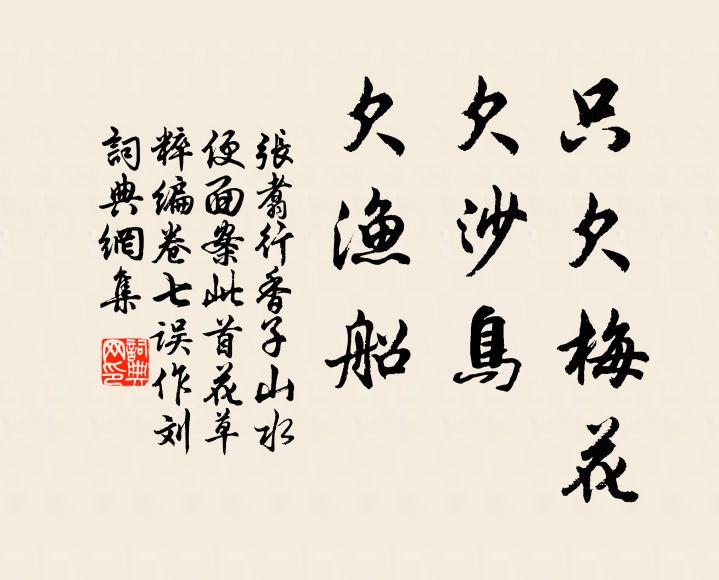 只欠梅花
欠沙鳥
欠漁船
張翥行香子山水
便面案此首花草
粹编卷七误作刘
詞典網集
詞典網印